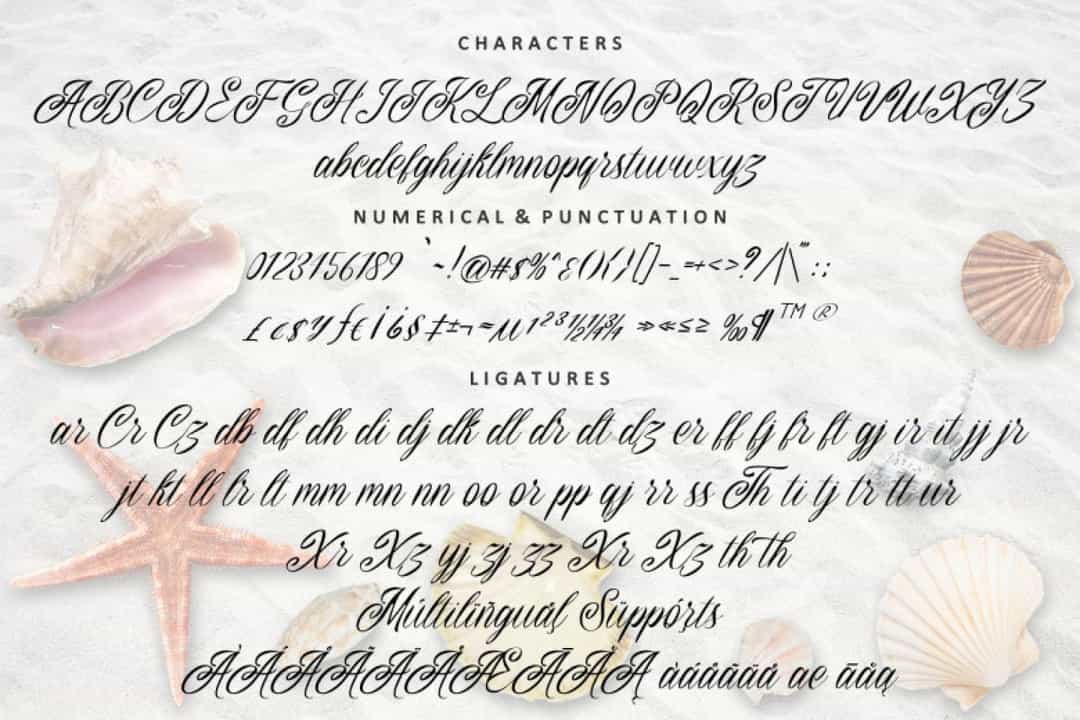 CHARACTERS
ABCDEFGHIJKLMNOPQRSTUVWXYZ
abcdefghijklmnopqrstuvwxyz
NUMERICAL & PUNCTUATION
0123456789 `~!@#$%^&(){}[]-_=+<>?/|\"':;
£¢$¥ƒ€¡¿§‡±¬≈µ¹²³½¼¾ »«≤≥ ‰¶™®
LIGATURES
ar Cr Cz db df dh di dj dk dl dr dt dz er ff fj fr ft gj ir it jj jr
jt kt ll lr lt mm mn nn oo or pp qj rr ss Th ti tj tr tt ur
Xr Xz yj zj zz Xr Xz th th